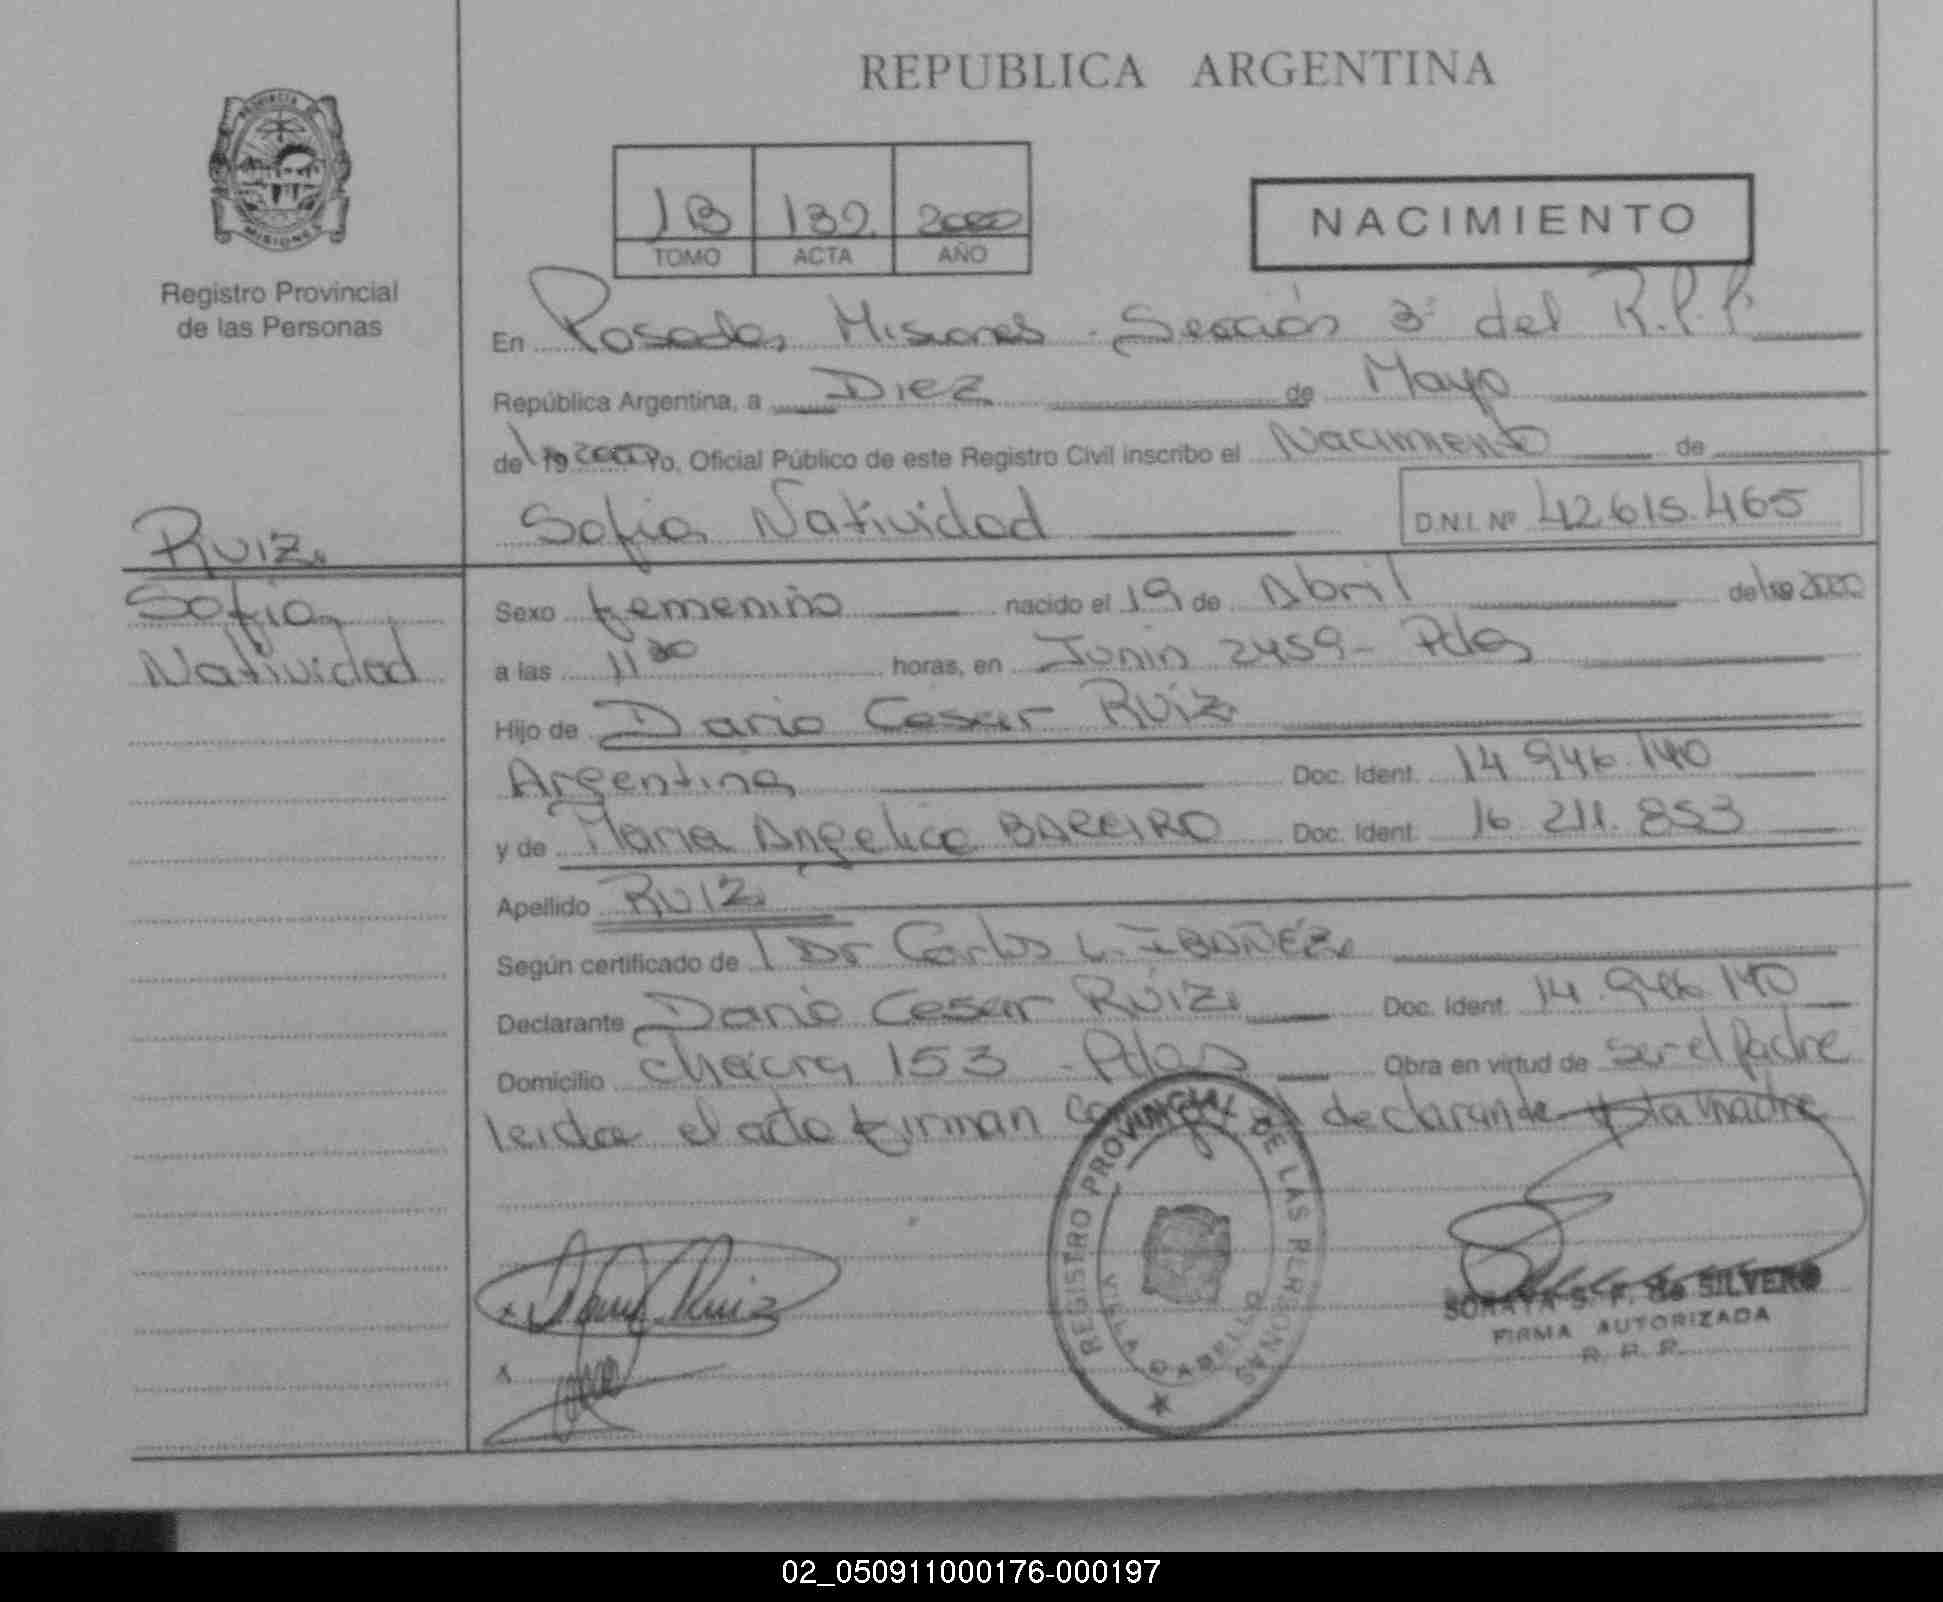 REPUBLICA ARGENTINA
PROVINCIA DE
MISIONES
Registro Provincial
de las Personas
1B 132 2000
TOMO ACTA AÑO
NACIMIENTO
En Posadas, Misiones - Sección 3ª del R.P.P.
República Argentina, a Diez de Mayo
del 19 2000 Yo, Oficial Público de este Registro Civil inscribo el Nacimiento de
Sofia Natividad D.N.I. Nº 42.615.465
Ruiz
Sofia
Natividad
Sexo femenino nacido el 19 de Abril del 19 2000
a las 11 30 horas, en Junin 2459 - Pdas
Hijo de Dario Cesar Ruiz
Argentina Doc. Ident. 14.946.140
y de Maria Angelica BAREIRO Doc. Ident. 16.211.853
Apellido RUIZ
Según certificado de Dr Carlos L. IBAÑEZ
Declarante Dario Cesar RUIZ Doc. Ident. 14.946.140
Domicilio chacra 153 - Pdas Obra en virtud de ser el padre
leida el acta firman declarande y la madre
REGISTRO PROVINCIAL DE LAS PERSONAS
VILLA CABELLO
x Ruiz
x
SORAYA S. F. de SILVERO
FIRMA AUTORIZADA
R. P. P.
02_050911000176-000197